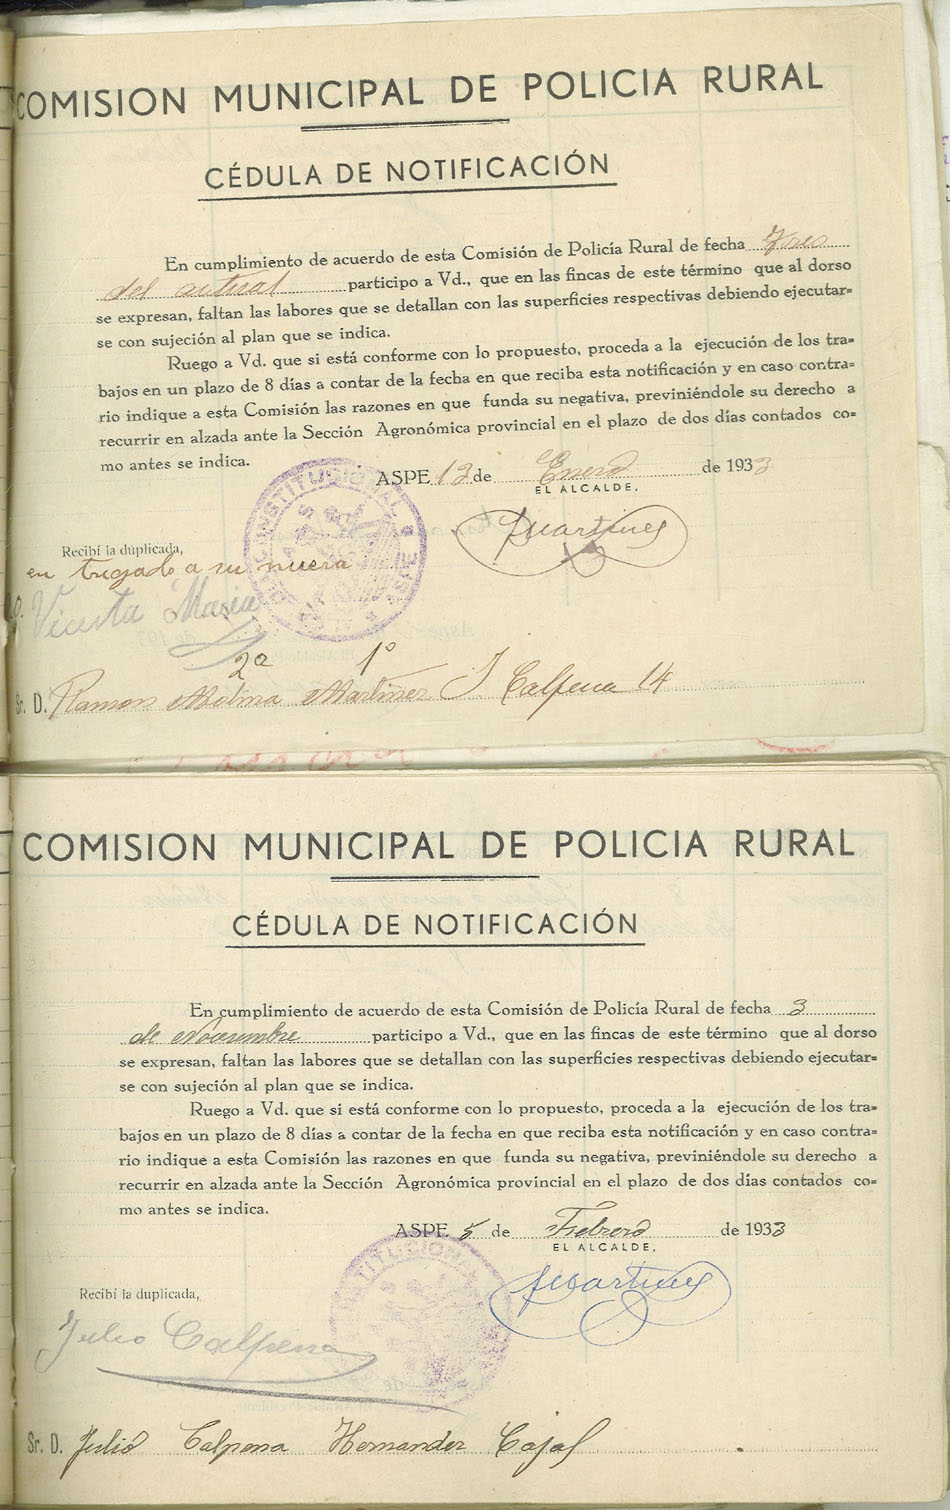 COMISION MUNICIPAL DE POLICIA RURAL
CÉDULA DE NOTIFICACIÓN
En cumplimiento de acuerdo de esta Comisión de Policía Rural de fecha Tres
del actual participo a Vd., que en las fincas de este término que al dorso
se expresan, faltan las labores que se detallan con las superficies respectivas debiendo ejecutar=
se con sujeción al plan que se indica.
Ruego a Vd. que si está conforme con lo propuesto, proceda a la ejecución de los tra=
bajos en un plazo de 8 días a contar de la fecha en que reciba esta notificación y en caso contra=
rio indique a esta Comisión las razones en que funda su negativa, previniéndole su derecho a
recurrir en alzada ante la Sección Agronómica provincial en el plazo de dos días contados co=
mo antes se indica.
ASPE 13 de Enero de 1933
EL ALCALDE,
JMartinez
Recibí la duplicada,
en tregado a su nuera
Vicenta Maria
2º 1º
Sr. D. Ramon Molina Martinez J Calpena 14
COMISION MUNICIPAL DE POLICIA RURAL
CÉDULA DE NOTIFICACIÓN
En cumplimiento de acuerdo de esta Comisión de Policía Rural de fecha 3
de Noviembre participo a Vd., que en las fincas de este término que al dorso
se expresan, faltan las labores que se detallan con las superficies respectivas debiendo ejecutar=
se con sujeción al plan que se indica.
Ruego a Vd. que si está conforme con lo propuesto, proceda a la ejecución de los tra=
bajos en un plazo de 8 días a contar de la fecha en que reciba esta notificación y en caso contra=
rio indique a esta Comisión las razones en que funda su negativa, previniéndole su derecho a
recurrir en alzada ante la Sección Agronómica provincial en el plazo de dos días contados co=
mo antes se indica.
ASPE 5 de Febrero de 1933
EL ALCALDE,
JMartinez
Recibí la duplicada,
Julio Calpena
Sr. D. Julio Calpena Hernander Cajal